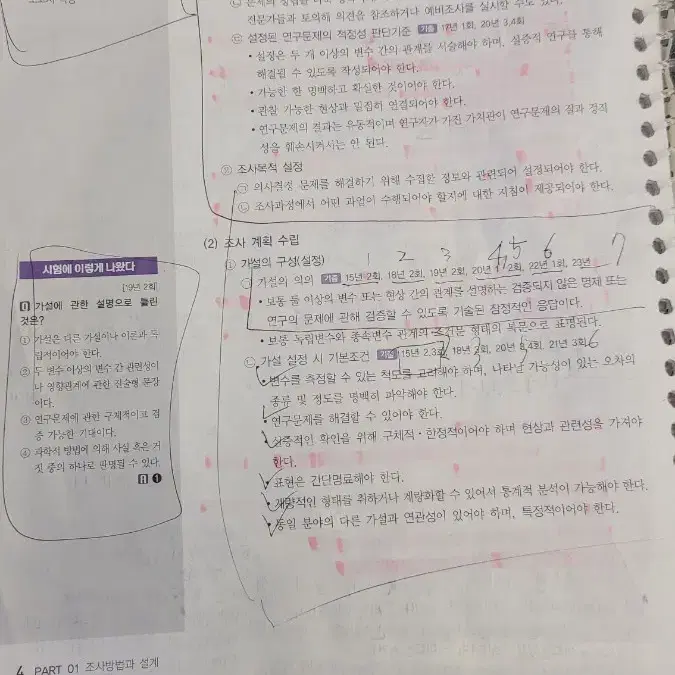 전문가들과 토의해 의견을 참조하거나 예비조사를 실시할 수도 있다.
설정된 연구문제의 적정성 판단기준 기출 17년 1회, 20년 3,4회
• 설정은 두 개 이상의 변수 간의 관계를 서술해야 하며, 실증적 연구를 통해
해결될 수 있도록 작성되어야 한다.
• 가능한 한 명백하고 확실한 것이어야 한다.
• 관찰 가능한 현상과 밀접히 연결되어야 한다.
• 연구문제의 결과는 유동적이며 연구자가 가진 가치관이 연구문제의 질과 정직
성을 훼손시켜서는 안 된다.
② 조사목적 설정
㉠ 의사결정 문제를 해결하기 위해 수집한 정보와 관련되어 설정되어야 한다.
㉡ 조사과정에서 어떤 과업이 수행되어야 할지에 대한 지침이 제공되어야 한다.
(2) 조사 계획 수립
① 가설의 구성(설정) 1 2 3 4, 5 6 7
㉠ 가설의 의의 기출 15년 2회, 18년 2회, 19년 2회, 20년 1, 2회, 22년 1회, 23년
• 보통 둘 이상의 변수 또는 현상 간의 관계를 설명하는 검증되지 않은 명제 또는
연구의 문제에 관해 검증할 수 있도록 기술된 잠정적인 응답이다.
• 보통 독립변수와 종속변수 관계의 조건문 형태의 복문으로 표명된다.
㉡ 가설 설정 시 기본조건 기출 15년 2.3회, 18년 3회, 20년 3,4회, 21년 3회 6
• 변수를 측정할 수 있는 척도를 고려해야 하며, 나타날 가능성이 있는 오차의
종류 및 정도를 명백히 파악해야 한다.
• 연구문제를 해결할 수 있어야 한다.
• 실증적인 확인을 위해 구체적·한정적이어야 하며 현상과 관련성을 가져야
한다.
• 표현은 간단명료해야 한다.
• 계량적인 형태를 취하거나 계량화할 수 있어서 통계적 분석이 가능해야 한다.
• 동일 분야의 다른 가설과 연관성이 있어야 하며, 특정적이어야 한다.
시험에 이렇게 나왔다
[19년 2회]
가설에 관한 설명으로 틀린
것은?
① 가설은 다른 가설이나 이론과 독
립적이어야 한다.
② 두 변수 이상의 변수 간 관련성이
나 영향관계에 관한 진술형 문장
이다.
③ 연구문제에 관한 구체적이고 검
증 가능한 기대이다.
④ 과학적 방법에 의해 사실 혹은 거
짓 중의 하나로 판명될 수 있다.
❶
4 PART 01 조사방법과 설계